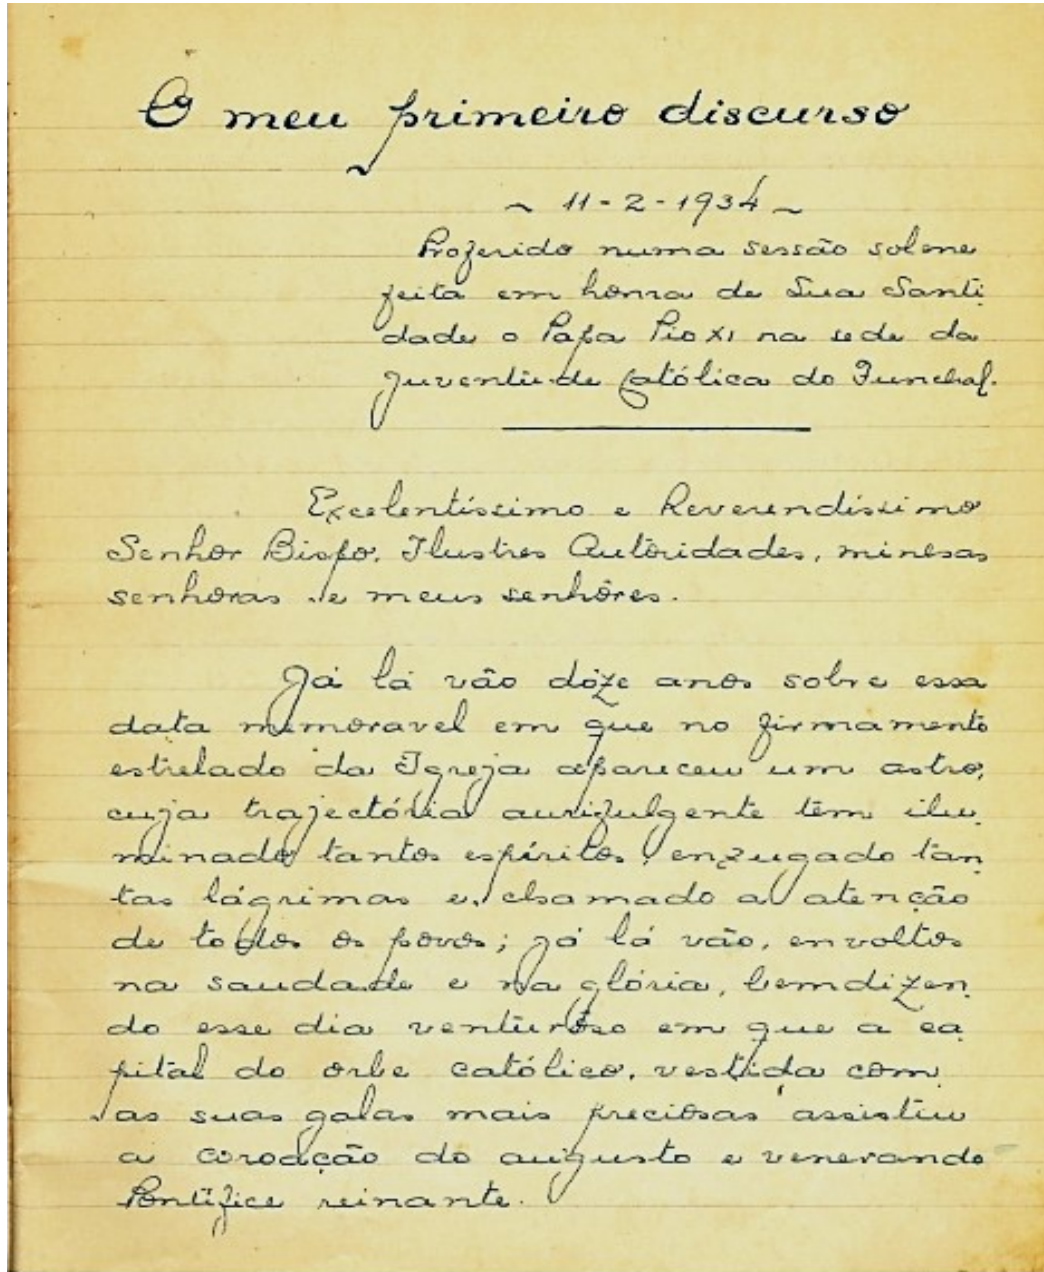 O meu primeiro discurso
~ 11-2-1934 ~
Proferido numa sessão solene
feita em honra de Sua Santi
dade o Papa Pio XI na sede da
Juventude Católica do Funchal.
Excelentíssimo e Reverendíssimo
Senhor Bispo, Ilustres Autoridades, minhas
senhoras e meus senhôres.
Já lá vão dôze anos sobre essa
data memoravel em que no firmamento
estrelado da Igreja apareceu um astro,
cuja trajectória aurifulgente têm ilu
minado tantos espíritos, enxugado tan
tas lágrimas e, chamado a atenção
de todos os povos; já lá vão, envoltos
na saudade e na glória, bemdizen
do esse dia venturôso em que a ca
pital do orbe católico, vestida com
as suas galas mais preciosas assistiu
a coroação do augusto e venerando
Pontífice reinante.